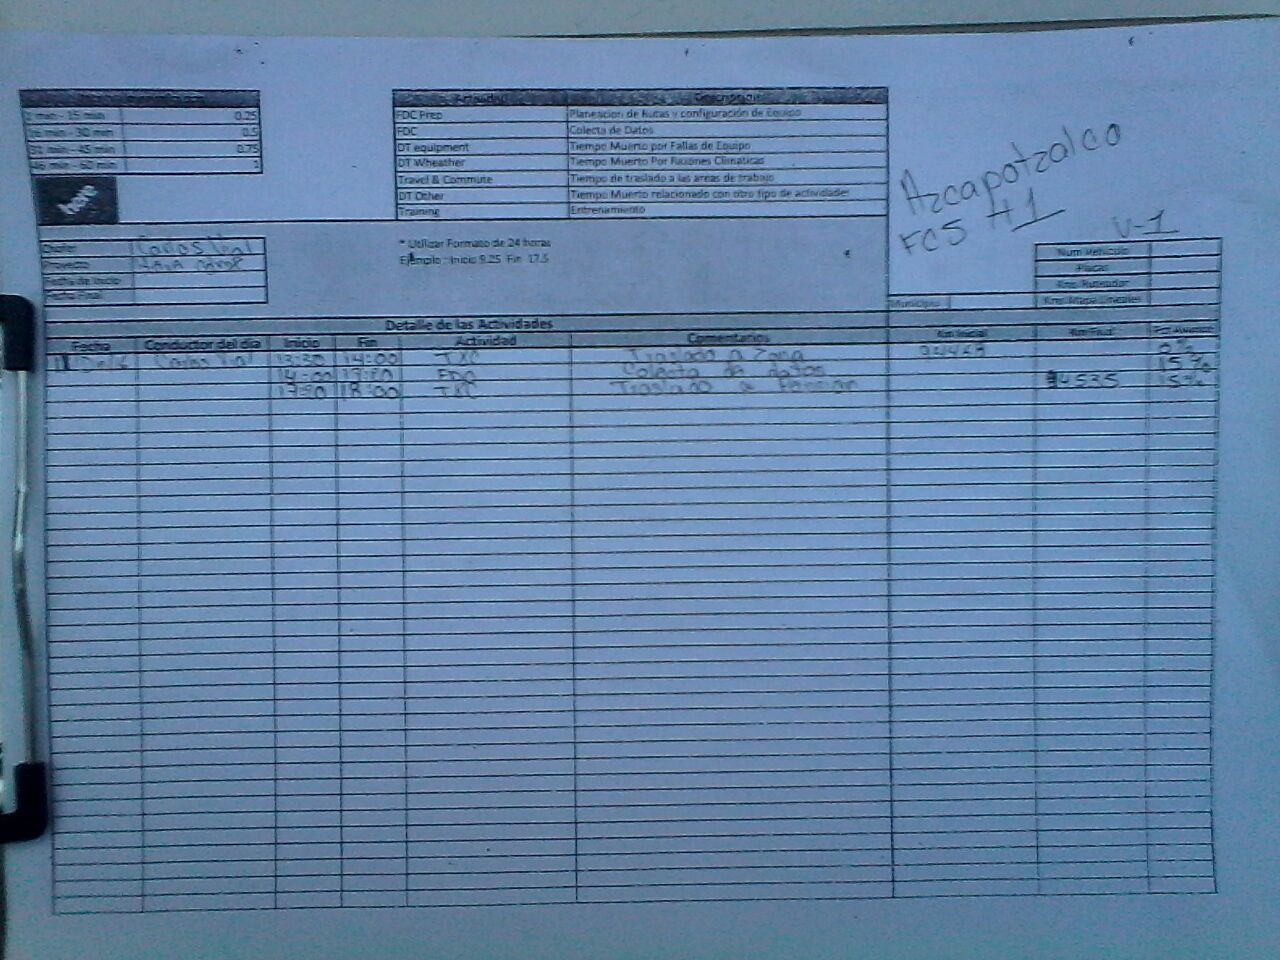 1 min - 15 min 0.25
16 min - 30 min 0.5
31 min - 45 min 0.75
46 min - 60 min 1
here
Actividad Descripcion
FDC Prep Planeacion de Rutas y configuración de Equipo
FDC Colecta de Datos
DT equipment Tiempo Muerto por Fallas de Equipo
DT Wheather Tiempo Muerto Por Razones Climaticas
Travel & Commute Tiempo de traslado a las areas de trabajo
DT Other Tiempo Muerto relacionado con otro tipo de actividades
Training Entrenamiento
Azcapotzalco
FCS #1
V-1
Chofer Carlos
Proyecto
Fecha de Inicio
Fecha Final
* Utilizar Formato de 24 horas
Ejemplo : Inicio 9.25 Fin 17.5
Num Vehiculo
Placas
Kms Ruteador
Municipio Kms Mapa Lineales
Detalle de las Actividades
Fecha Conductor del día Inicio Fin Actividad Comentarios Km Inicial Km Final Pct Avance
Carlos 13:30 14:00 TXC Traslado a Zona 0%
14:00 FDC Colecta de datos 15%
18:00 TXC Traslado a Pension 4535 15%